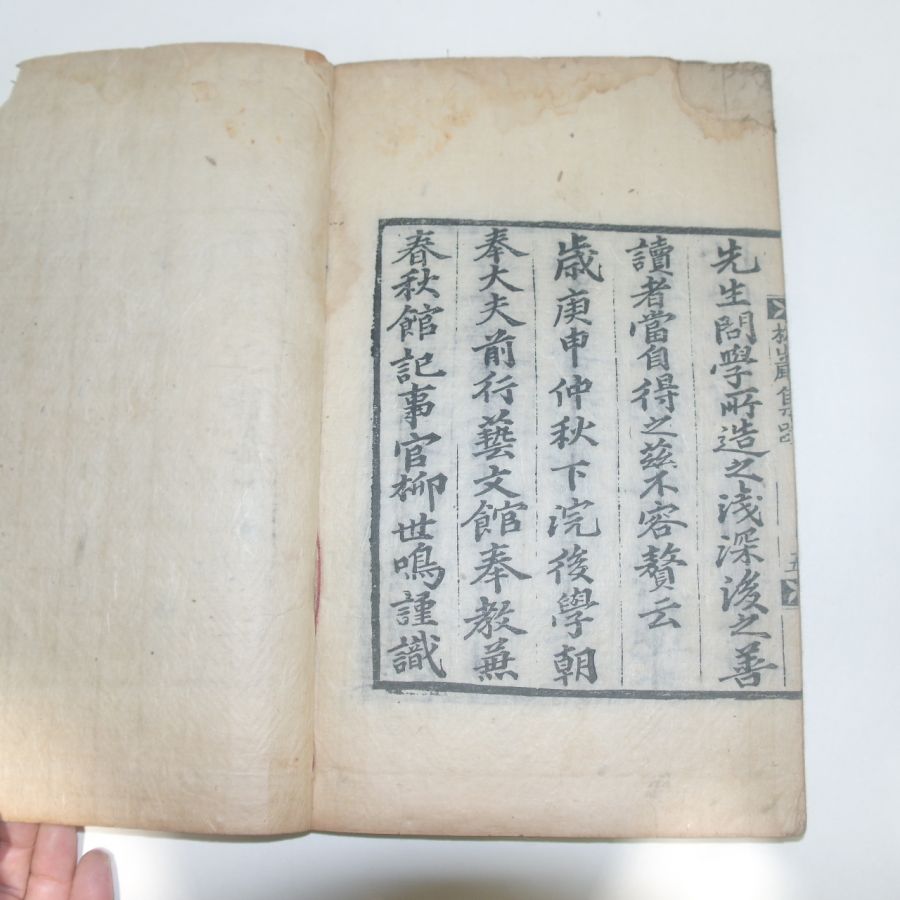 先生問學所造之淺深後之善
讀者當自得之玆不容贅云
歲庚申仲秋下浣後學朝
奉大夫前行藝文館奉教兼
春秋館記事官柳世鳴謹識
巖集